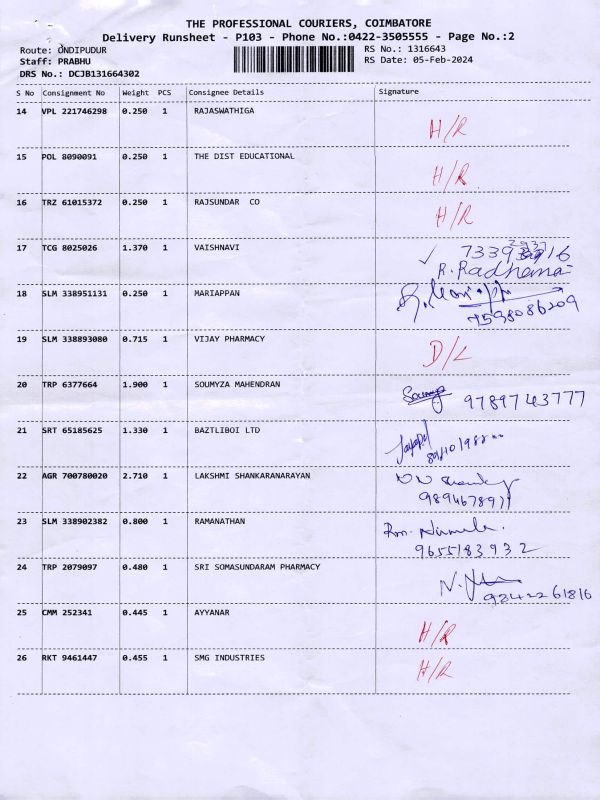 THE PROFESSIONAL COURIERS, COIMBATORE
Delivery Runsheet - P103 - Phone No.:0422-3505555 - Page No.:2
Route: ONDIPUDUR RS No.: 1316643
Staff: PRABHU RS Date: 05-Feb-2024
DRS No.: DCJB131664302
S No Consignment No Weight PCS Consignee Details Signature
14 VPL 221746298 0.250 1 RAJASWATHIGA H/R
15 POL 8090091 0.250 1 THE DIST EDUCATIONAL H/R
16 TRZ 61015372 0.250 1 RAJSUNDAR CO H/R
17 TCG 8025026 1.370 1 VAISHNAVI
R. Radhamai
18 SLM 338951131 0.250 1 MARIAPPAN
7598086209
19 SLM 338893080 0.715 1 VIJAY PHARMACY D/L
20 TRP 6377664 1.900 1 SOUMYZA MAHENDRAN Soumya 9789743777
21 SRT 65185625 1.330 1 BAZTLIBOI LTD
22 AGR 700780020 2.710 1 LAKSHMI SHANKARANARAYAN
23 SLM 338902382 0.800 1 RAMANATHAN Rm. Nirmala.
9655183932
24 TRP 2079097 0.480 1 SRI SOMASUNDARAM PHARMACY
9842261816
25 CMM 252341 0.445 1 AYYANAR H/R
26 RKT 9461447 0.455 1 SMG INDUSTRIES H/R